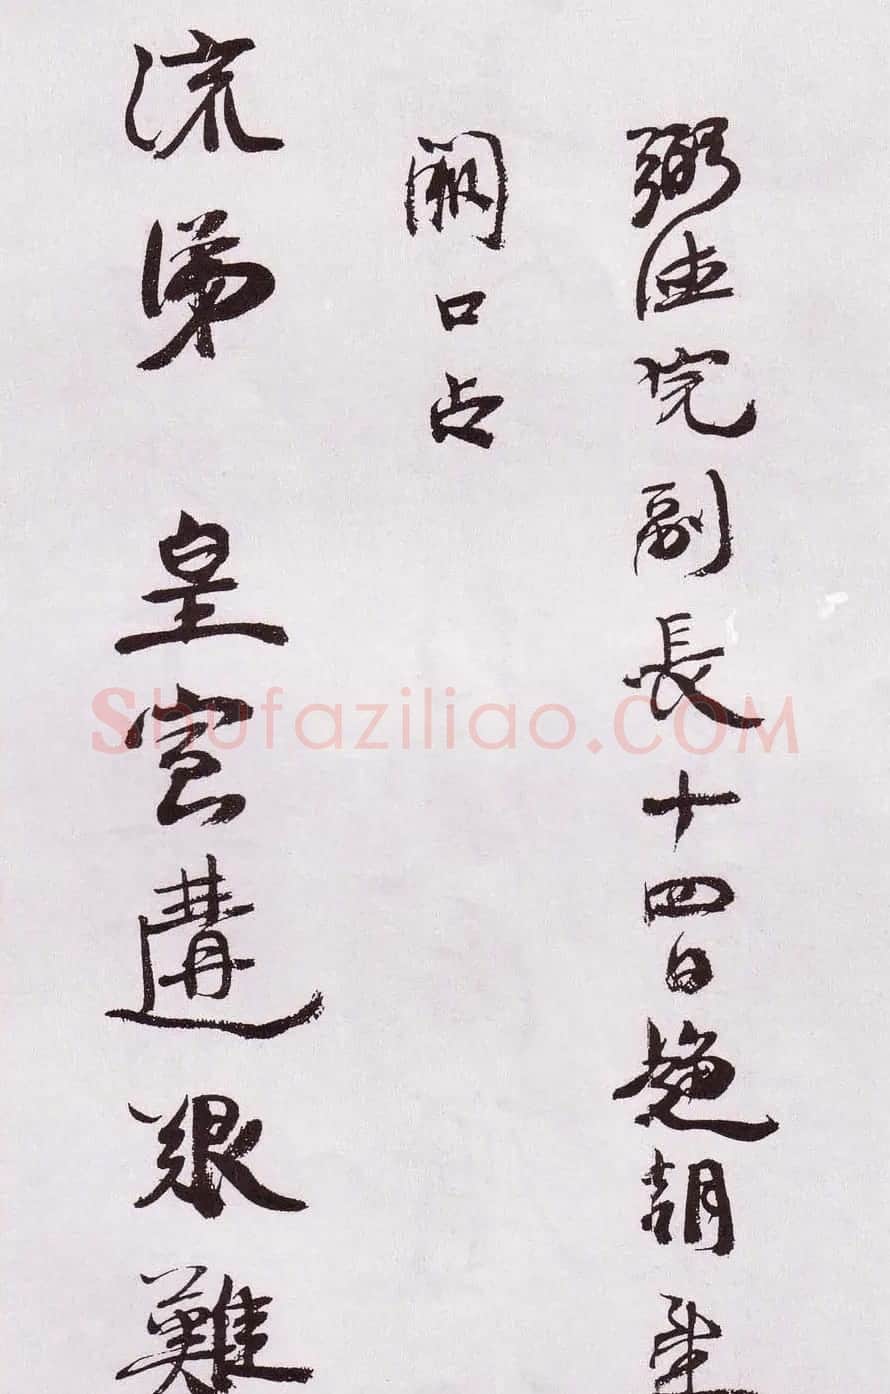 弼德院副長十四日趨朝
闕口占
流涕 皇宮遘艱難
Shufaziliao.COM